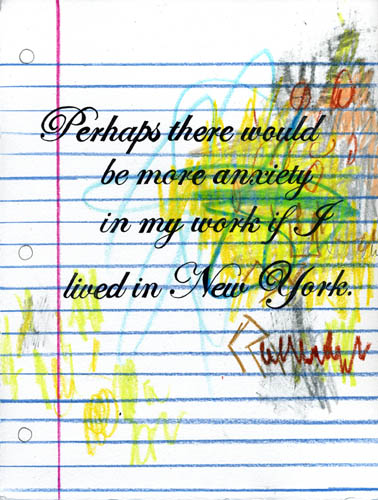 Perhaps there would
be more anxiety
in my work if I
lived in New York.